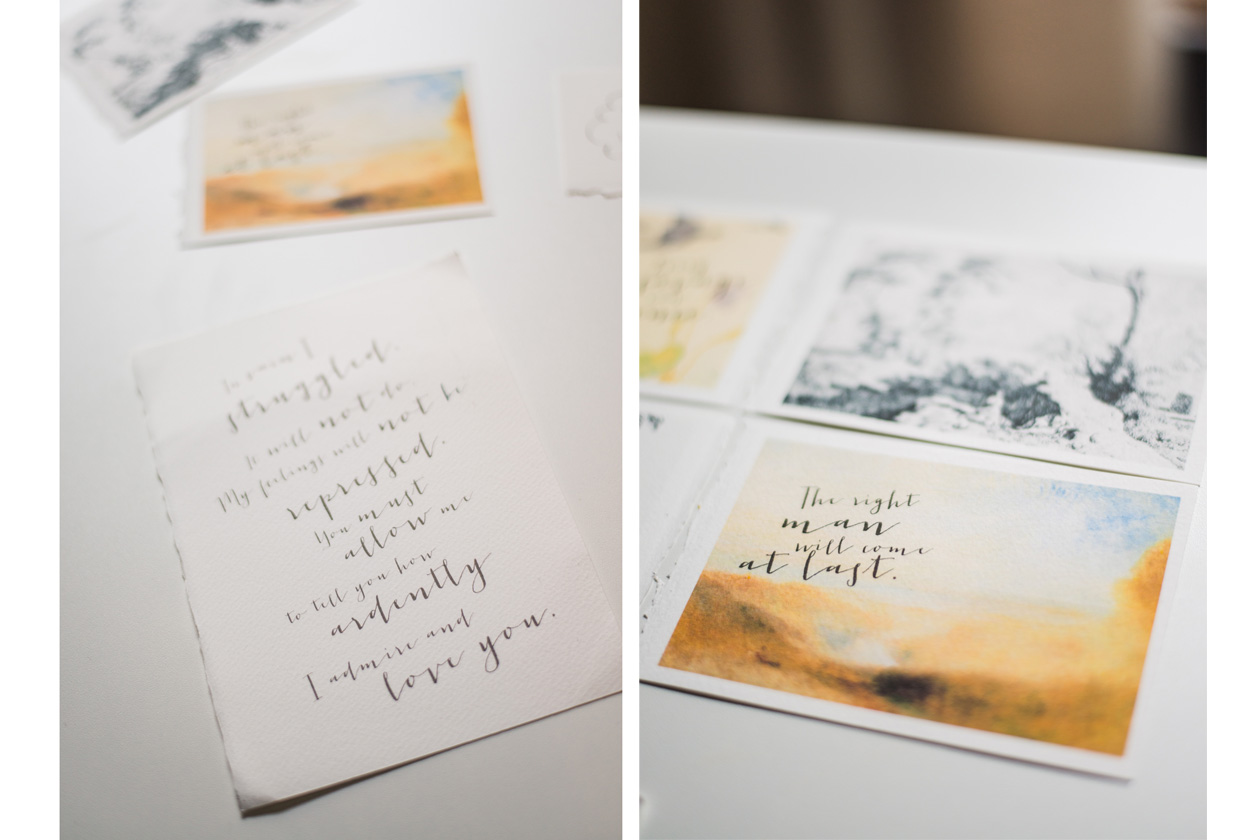 In vain I
struggled.
It will not do.
My feelings will not be
repressed.
You must
allow me
to tell you how
ardently
I admire and
love you.
The right
man
will come
at last.